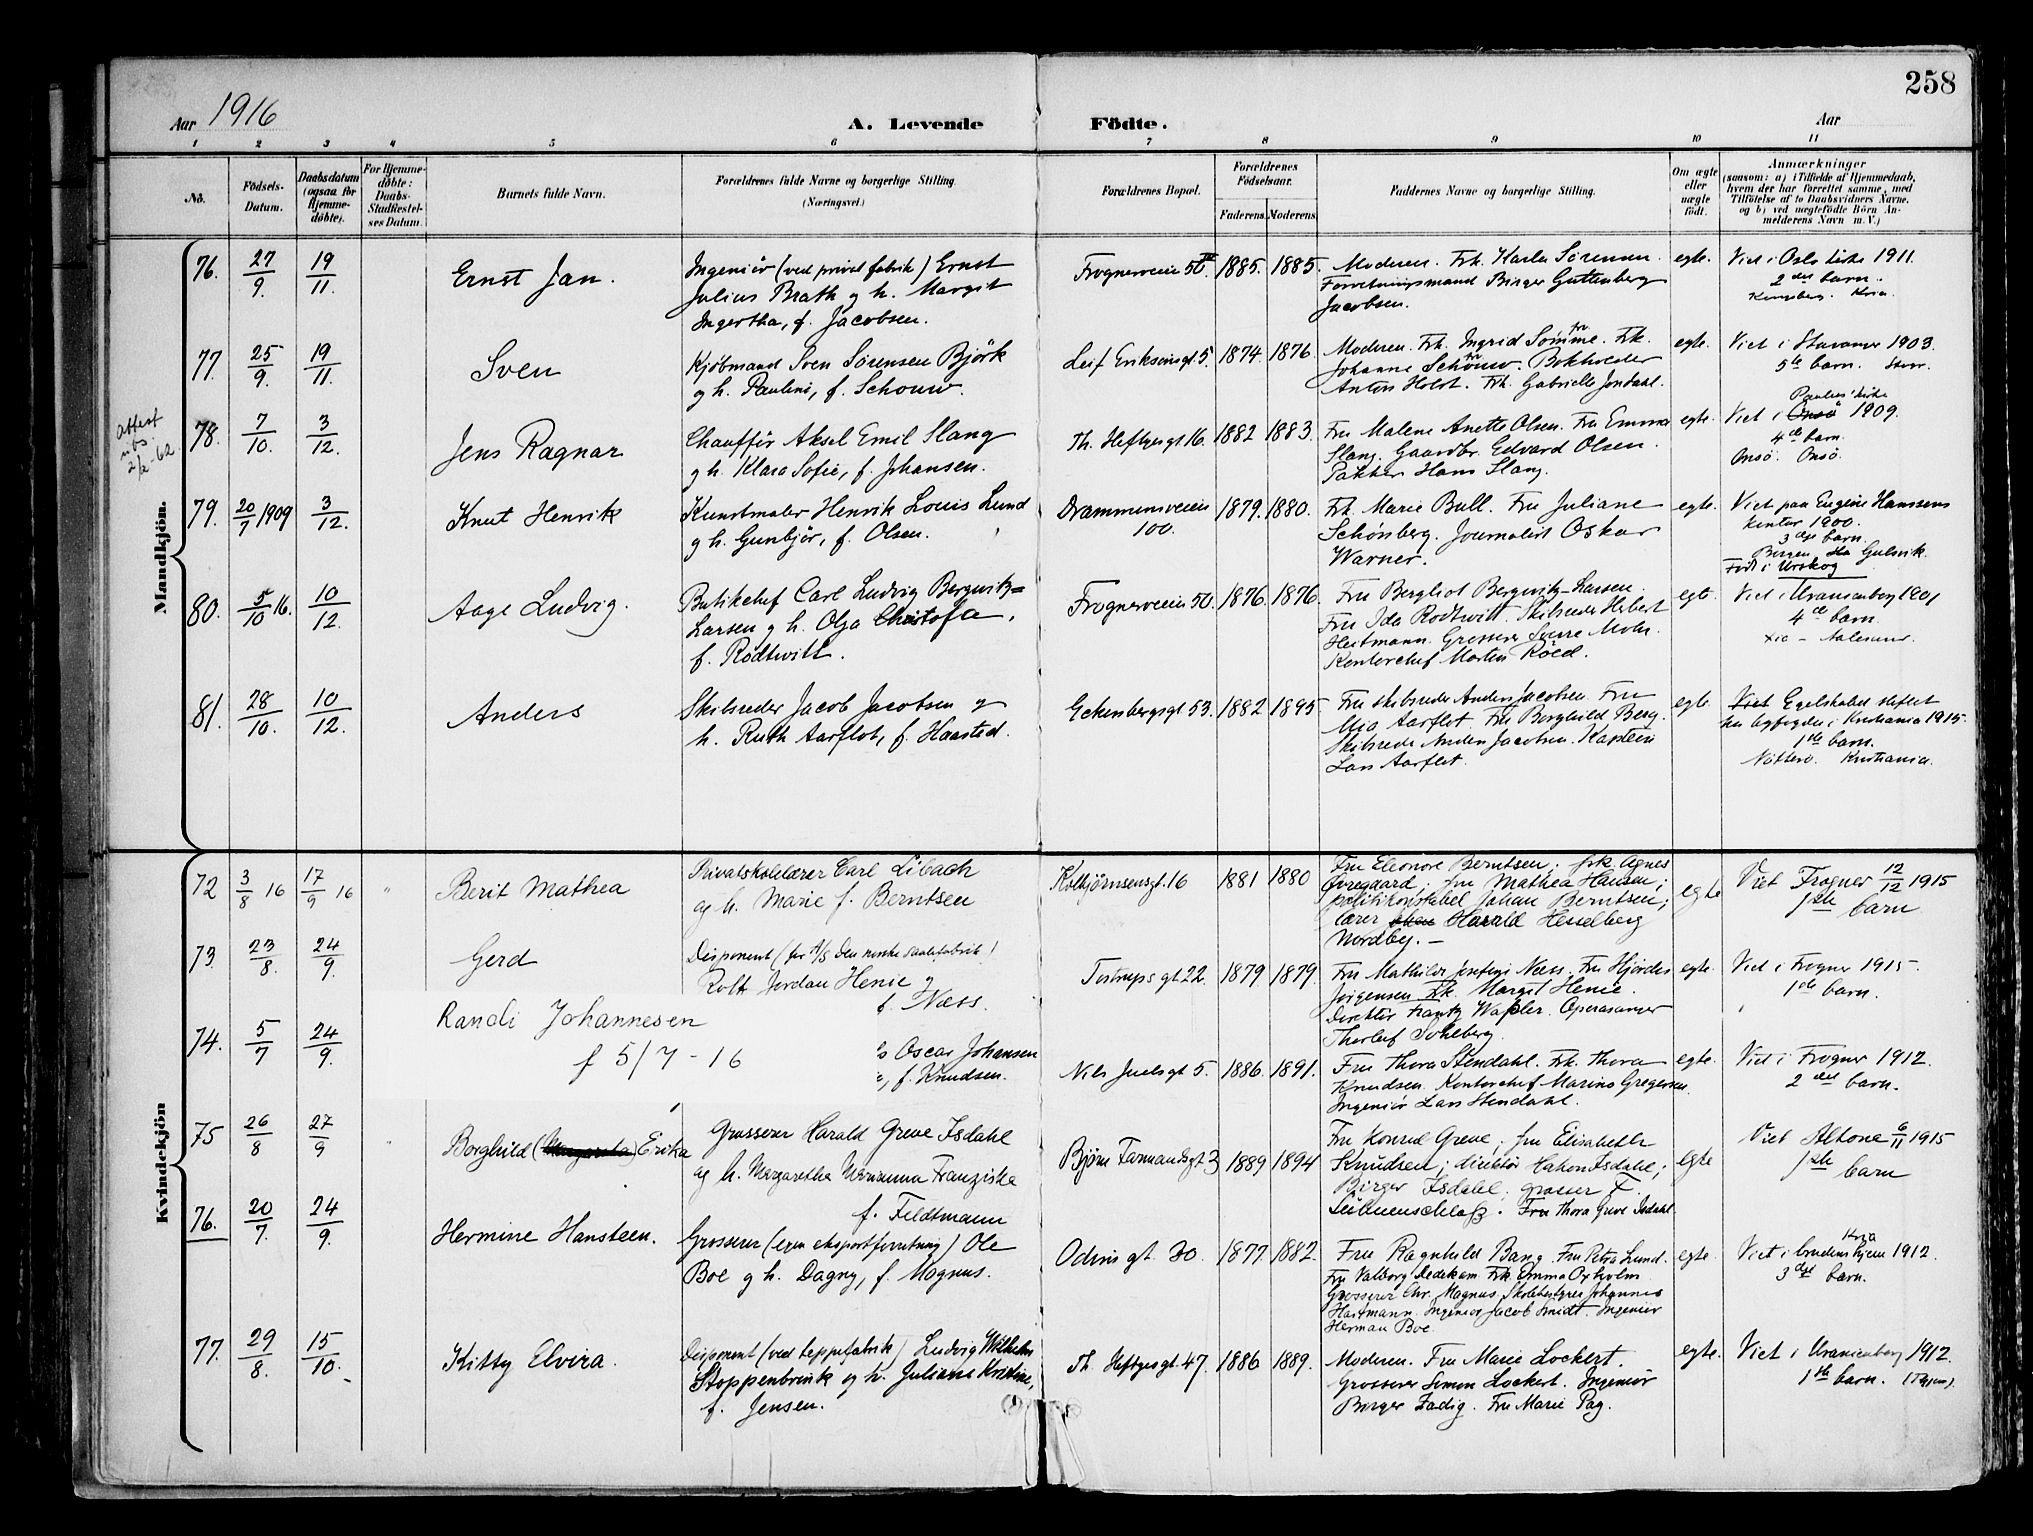 258
Aar 1916
A. Levende Fødte.
Aar
1 2 3 4 5 6 7 8 9 10 11
No.
Fødsels-Datum.
Daabsdatum (ogsaa for Hjemmedøbte).
For Hjemmedøbte: Daabs-Stadfæstelses Datum.
Barnets fulde Navn.
Forældrenes fulde Navne og borgerlige Stilling.
(Næringsvei.)
Forældrenes Bopæl.
Forældrenes Fødselsaar.
Faderens. Moderens.
Faddernes Navne og borgerlige Stilling.
Om ægte eller uægte født.
Anmærkninger
(saasom: a) i Tilfælde af Hjemmedaab,
hvem der har forrettet samme, med
Tilføielse af to Daabsvidners Navne.
og b) ved uægtefødte Børn An-
melderens Navn m. V.)
Mandkjøn.
76. 27/9. 19/11. Ernst Jan.
Ingeniør (ved privat fabrik) Ernst
Julius Brath og h. Margit
Ingertha, f. Jacobsen.
Frognerveien 50 1885. 1885.
Moderen. Frk. Karla Sørensen
Forretningsmand Birger Guttenberg
Jacobsen.
egte.
Viet i Oslo kirke 1911.
2det barn.
Kria.
77. 25/9. 19/11. Sven
Kjøbmand Sven Sørensen Björk
og h. Pauline, f. Schouw.
Leif Eriksensgt 5. 1874. 1876.
Moderen. Frk. Ingrid Sømme. Frk.
Johanne Schouw. Bokholder
Anton Holst. Frk. Gabrielle Jondahl.
egte.
Viet i Stavanger 1903.
5te barn.
Attest
2/2-62
78. 7/10. 3/12. Jens Ragnar
Chauffør Aksel Emil Slang
og h. Klara Sofie, f. Johansen.
Th. Heftyesgt 16. 1882 1883.
Fru Malene Anette Olsen. Fru Emma
Slang. Gaardbr. Edvard Olsen.
Pakker Hans Slang.
egte.
Paulus' kirke
Viet i Onsö 1909.
4de barn.
Onsö. Onsö.
79. 20/7 1909 3/12. Knut Henrik
Kunstmaler Henrik Louis Lund
og h. Gunbjør, f. Olsen.
Drammensveien
100.
1879. 1880.
Frk. Marie Bull. Fru Juliane
Schønberg. Journalist Oskar
Warner.
egte.
Viet paa Eugene Hanssens
kontor 1900.
3die barn.
Bergen Gulsvik.
Født i Urskog
80. 5/10 16. 10/12. Aage Ludvig.
Butikchef Carl Ludvig Bergwitz=
Larsen og h. Olga Christofa,
f. Rodtwitt.
Frognerveien 50. 1876. 1876.
Fru Bergliot Bergwitz-Larsen.
Fru Ida Rodtwitt. Skibsreder Herbert
Heitmann. Grosserer Sverre Mohr.
Kontorchef Morten Röed.
egte.
Viet i Uranienborg 1901
4de barn.
Xia - Aalesund.
81. 28/10. 10/12. Anders
Skibsreder Jacob Jacobsen og
h. Ruth Aarflot, f. Haasted.
Eckersbergsgt 53. 1882 1895
Fru skibsreder Anders Jacobsen. Fru
Mia Aarflot. Fru Borghild Berg.
Skibsreder Anders Jacobsen. Kaptein
Lars Aarflot.
egte.
Viet Egteskabet stiftet
hos byfogden i Kristiania 1915.
1ste barn.
Nötterö. Kristiania.
Kvindekjøn
72 3/8 16 17/9 16 " Berit Mathea
Privatskolelærer Carl Libach
og h. Marie f. Berntsen
Kolbjörnsensgt. 16 1881 1880
Fru Eleonore Berntsen; frk. Agnes
Övregaard; fru Mathea Hansen;
politikonstabel Johan Berntsen;
lærer Harald Hesselberg
Nordby. —
egte
Viet Frogner 12/12 1915
1ste barn
73. 23/8. 24/9. Gerd
Disponent (for A/S Den norske
Rolf Jordan Henie og
f. Næss.
Tostrups gt 22. 1879 1879.
Fru Mathilde Josefine Næss. Fru Hjördis
Jörgensen Frk. Margit Henie.
Direktör Frantz Wapler. Operasanger
Thorleif Sohlberg.
egte.
Viet i Frogner 1915.
1ste barn.
74. 5/7 24/9.
Randi Johannesen
f 5/7 - 16
Oscar Johansen
f. Knudsen.
Nils Juelsgt 5. 1886. 1891.
Fru Thora Stendahl. Frk. Thora
Knudsen. Kontorchef Marino Gregersen
Ingeniør Lars Stendahl.
egte.
Viet i Frogner 1912.
2det barn.
75 26/8 27/9 " Borghild (Margareta) Erika
Grosserer Harald Greve Isdahl
og h. Margaretha Marianna Franziska
f. Feldtmann
Björn Farmandsgt 3 1889 1894
Fru Konsul Greve; fru Elisabeth
Knudsen; direktör Hakon Isdahl;
Birger Isdahl; grosser F.
Leibnenschlaß. Fru Thora Greve Isdahl
egte
Viet Altona 6/11 1915
1ste barn
76. 20/7. 24/9. Hermine Hansteen.
Grosserer (egen eksportforretning) Ole
Boe og h. Dagny, f. Magnus.
Odins gt. 30. 1877. 1882.
Fru Ragnhild Bang. Fru Petra Lund.
Fru Valborg Dedekam Frk. Emma Oxholm
Grosserer Chr. Magnus Skolebestyrer Johannes
Hartmann. Ingeniør Jacob Smidt Ingeniør
Herman Boe.
egte.
Kria
Viet i brudens hjem 1912.
3die barn.
77. 29/8. 15/10. Kitty Elvira.
Disponent (ved teppefabrik) Ludvig Wilhelm
Stoppenbrink og h. Juliane Kristine,
f. Jensen.
Th. Heftyesgt 47. 1886 1889.
Moderen. Fru Marie Lockert.
Grosserer Simon Lockert. Ingeniør
Birger Fadig. Fru Marie Pag.
egte.
Viet i Uranienborg 1912.
1ste barn.